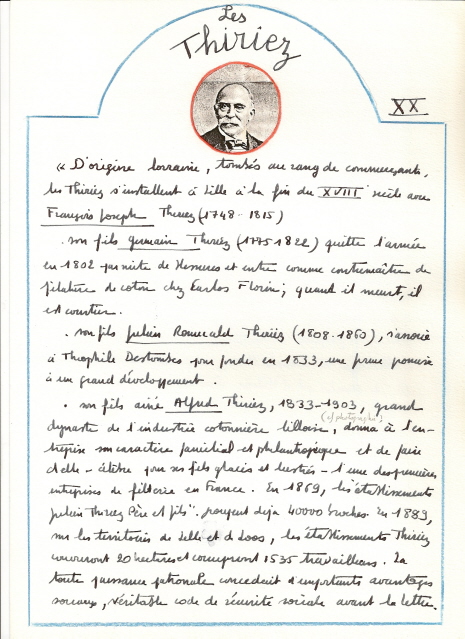 Les
Thiriez
XX
« D'origine lorraine, tombés au rang de commerçants,
les Thiriez s'installent à Lille à la fin du XVIII siècle avec
François Joseph Thiriez (1748 - 1815)
. son fils Germain Thiriez (1775 1822) quitte l'armée
en 1802 et entre comme contremaître de
filature de coton chez Carlos Florin ; quand il meurt, il
est courtier.
. son fils Julien Romuald Thiriez (1808-1860), s'associe
à Théophile Destombes pour fonder en 1833, une firme promise
à un grand développement.
. son fils aîné Alfred Thiriez, 1833-1903, grand
(cf photographie)
dynaste de l'industrie cotonnière lilloise, donna à l'en-
treprise son caractère familial et philanthropique et de faire
d'elle - célèbre pour ses fils glacés et lustrés - l'une des premières
entreprises de filterie en France. En 1869, les établissements
Julien Thiriez Père et fils" déjà 40000 broches. En 1889,
sur les territoires de Lille et de Loos, les établissements Thiriez
couvriront 20 hectares et 1535 travailleurs. La
toute puissance patronale concédait d'importants avantages
sociaux, véritable code de sécurité sociale avant la lettre.